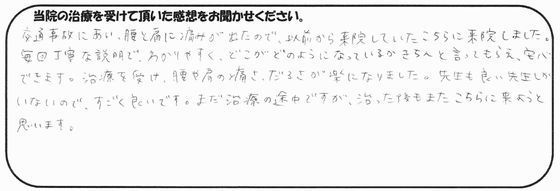 当院の治療を受けて頂いた感想をお聞かせください。
交通事故にあい、腰と肩に痛みが出たので、以前から来院していたこちらに来院しました。
毎回丁寧な説明で、わかりやすく、どこがどのようになっているかきちんと言ってもらえ、安心
できます。治療を受け、腰や肩の痛さ、だるさが楽になりました。先生も良い先生しか
いないので、すごく良いです。まだ治療の途中ですが、治った後もまたこちらに来ようと
思います。